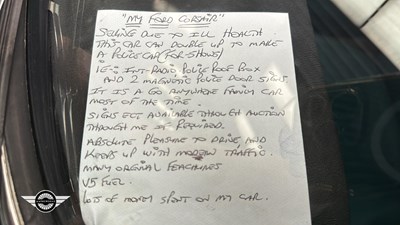 "MY FORD CORSAIR"
SELLING DUE TO ILL HEALTH
THIS CAR CAN DOUBLE UP TO MAKE
A POLICE CAR (FOR SHOWS)
IE-: INT RADIO POLICE ROOF BOX
AND 2 MAGNETIC POLICE DOOR SIGNS.
IT IS A GO ANYWHERE FAMILY CAR
MOST OF THE TIME.
SIGNS ECT AVAILABLE THROUGH AUCTION
THROUGH ME IF REQUIRED.
ABSOLUTE PLEASURE TO DRIVE AND
KEEPS UP WITH MODERN TRAFFIC.
MANY ORIGINAL
V5 FUEL.
LOTS OF MONEY SPENT ON MY CAR.